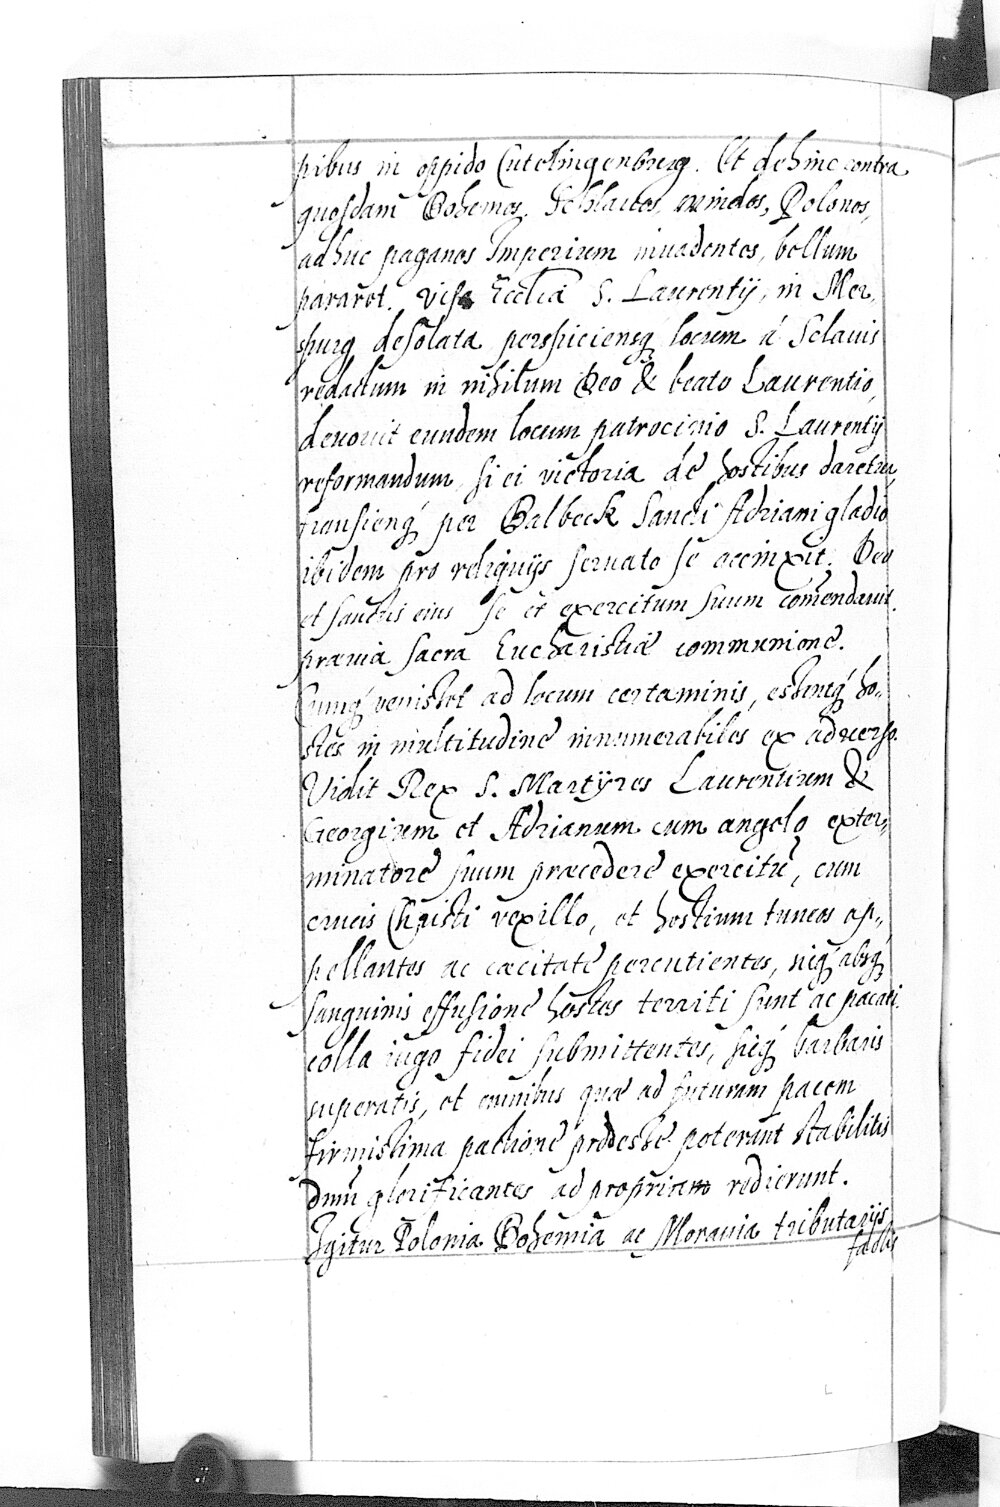 pibus in oppido Cutelingenberg. Et dehinc contra
quosdam Bohemos, Schlauos, windos, Polonos,
adhuc paganos Imperium inuadentes, bellum
pararet. Visa Ecclia S. Laurentij, in Mer,
spurg desolata perspiciensq́ locum á Sclauis
redactum in nihilum Deo & beato Laurentio,
deuouit eundem locum patrocinio S. Laurentij
reformandum, si ei victoria de hostibus daretur,
transiensq́ per Balbeck Sancti Adriani gladio
ibidem pro reliquijs seruato se accinxit. Deo
et sanctis eius se et exercitum suum comendauit
præuia sacra Eucharistiæ communione.
Cumq́ venisset ad locum certaminis, essentq́ ho-
stes in multitudine innumerabiles ex aduerso.
Vidit Rex S. Martyres Laurentium &
Georgium et Adrianum cum angelo exter-
minatore suum præcedere exercitū, cum
crucis Christi vexillo, et hostium tuneos ap-
pellantes ac cæcitate percutientes, niq́ absq́
sanguinis effusione hostes territi sunt ac pacati
colla iugo fidei submittentes, sicq́ barbaris
superatis, et omnibus quæ ad futuram pacem
firmissima pactione prodesse poterant stabilitis
dnm̄ glorificantes ad propriam redierunt.
Igitur Polonia Bohemia ac Morauia tributarijs
factis